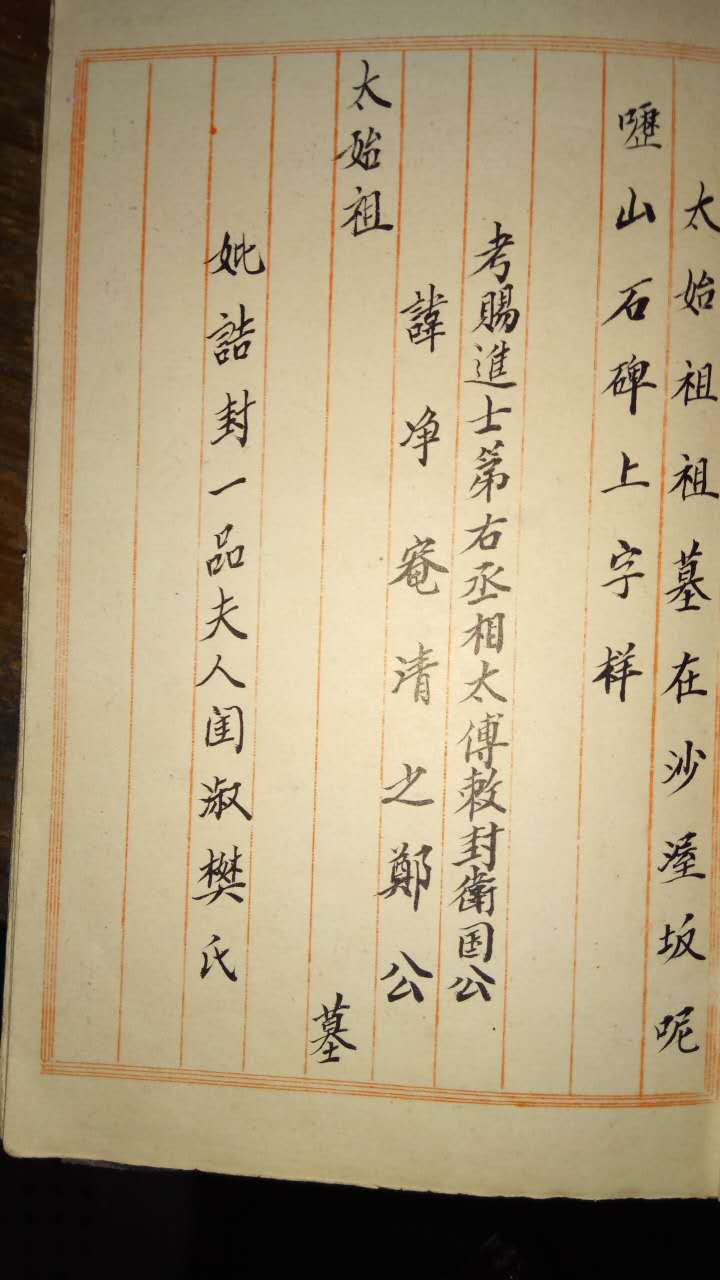 太始祖祖墓在沙渥坂呢
嚦山石碑上字样
考賜進士第右丞相太傅敕封衛国公
諱净菴清之鄭公
太始祖 墓
妣誥封一品夫人闺淑樊氏